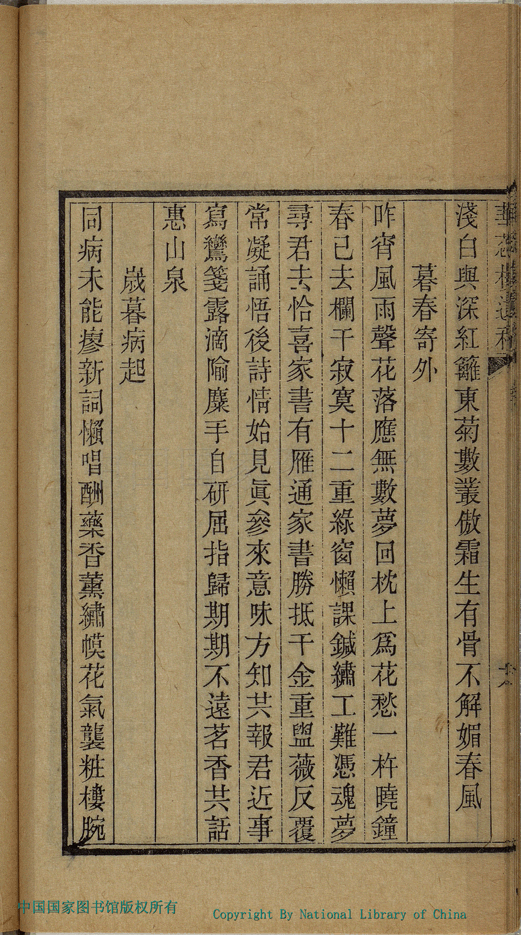 淺白與深紅籬東菊數叢傲霜生有骨不解媚春風
暮春寄外
昨宵風雨聲花落應無數夢回枕上爲花愁一杵曉鐘
春已去欄干寂寞十二重綠窗懶課鍼繡工難憑魂夢
尋君去恰喜家書有雁通家書勝抵千金重盥薇反覆
常凝誦悟後詩情始見眞參來意味方知共報君近事
寫鸞箋露滴隃麋手自研屈指歸期期不遠茗香共話
惠山泉
歲暮病起
同病未能瘳新詞懶唱酬藥香薰繡幙花氣襲粧樓腕
中国国家图书馆版权所有
Copyright By National Library of China